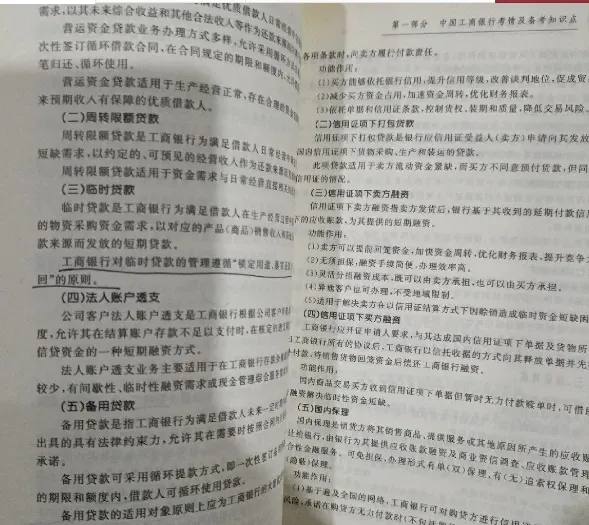 需求,以其未来综合收益和其他合法收入等作为还款来源
营运资金贷款业务办理方式多样,允许采用循环方式
次性签订循环借款合同,在合同规定的期限和额度内,允许
笔归还、循环使用。
营运资金贷款适用于生产经营正常,存在合理的
来预期收入有保障的优质借款人。
(二)周转限额贷款
周转限额贷款是工商银行为满足借款人日常经营中
短缺需求,以约定的、可预见的经营收入作为还款来源
周转限额贷款适用于资金需求与日常经营直接相关
(三)临时贷款
临时贷款是工商银行为满足借款人在生产经营过程中
的物资采购资金需求,以对应的产品(商品)销售收入
款来源而发放的短期贷款。
工商银行对临时贷款的管理遵循“锁定用途、
回”的原则。
(四)法人账户透支
公司客户法人账户透支是工商银行根据公司客户
度,允许其在结算账户存款不足以支付时,在核定的透支
信贷资金的一种短期融资方式。
法人账户透支业务主要适用于在工商银行存款
较少,有间歇性、临时性融资需求或现金管理综合服务
(五)备用贷款
备用贷款是指工商银行为满足借款人未来一定时期
出具的具有法律约束力,允许其在需要时按照合同
承诺。
备用贷款可采用循环提款方式,即一次性签订
的期限和额度内,借款人可循环使用贷款。
备用贷款的适用对象原则上应为工商银行的
第一部分 中国工商银行考情及备考知识点
各项条款时,向卖方履行付款责任。
功能作用:
(1)买方能够依托银行信用,提升信用等级,改善谈判地位,促成贸
(2)减少买方资金占用,加速资金周转,优化财务报表。
(3)依托单据和信用证条款,控制货权、装期和质量,降低交易风险
(二)信用证项下打包贷款
信用证项下打包贷款是银行应信用证受益人(卖方)申请向其发放
国内信用证项下货物采购、生产和装运的贷款。
此项贷款适用于卖方流动资金紧缺,而买方不同意预付货款,但同
信用证的情况。
(三)信用证项下卖方融资
信用证项下卖方融资指卖方发货后,银行基于其收到的延期付款信用
下的应收账款,为其提供的短期融资。
功能作用:
(1)卖方可以提前回笼资金,加快资金周转,优化财务报表,提升竞争
(2)无须担保,融资手续简便,办理效率高。
(3)灵活分担融资成本,既可以由卖方承担,也可以由买方承担。
(4)异议客户也可办理,不受地域限制。
(5)适用于解决卖方在以信用证结算方式下因赊销造成临时资金短缺困
(四)信用证项下买方融资
工商银行应开证申请人要求,与其达成国内信用证项下单据及货物所
工商银行所有的协议后,工商银行以信托收据的方式向其释放单据并先
付款,待销售货物回笼资金后偿还工商银行融资。
功能作用:
国内商品交易买方收到信用证项下单据但暂时无力付款赎单时,可借
融资解决临时性资金短缺。
(五)国内保理
国内保理是销货方将其销售商品、提供服务或其他原因所产生的应收账
让给银行,由银行为其提供应收账款融资及商业资信调查、应收账款管理
合性金融服务。可免担保,办理形式有单(双)保理、有(无)追索权保理和
(隐蔽)保理。
功能作用:
(1)基于遍及全国的网络,工商银行可对购货方进行信用
风险,承诺在购货方无力付款时(不包括